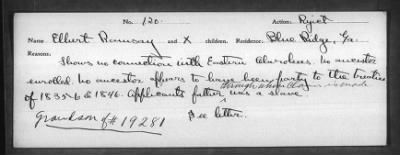 No. 120. Action: Reject
Name Elbert Ramsay and X children. Residence: Blue Ridge, Ga.
Reasons:
Shows no connection with Eastern Cherokees. No ancestor
enrolled. No ancestor appears to have been party to the treaties
through whom claim is made
of 1835-6 & 1846. Applicants father was a slave.
Grandson of #19281 See letter.